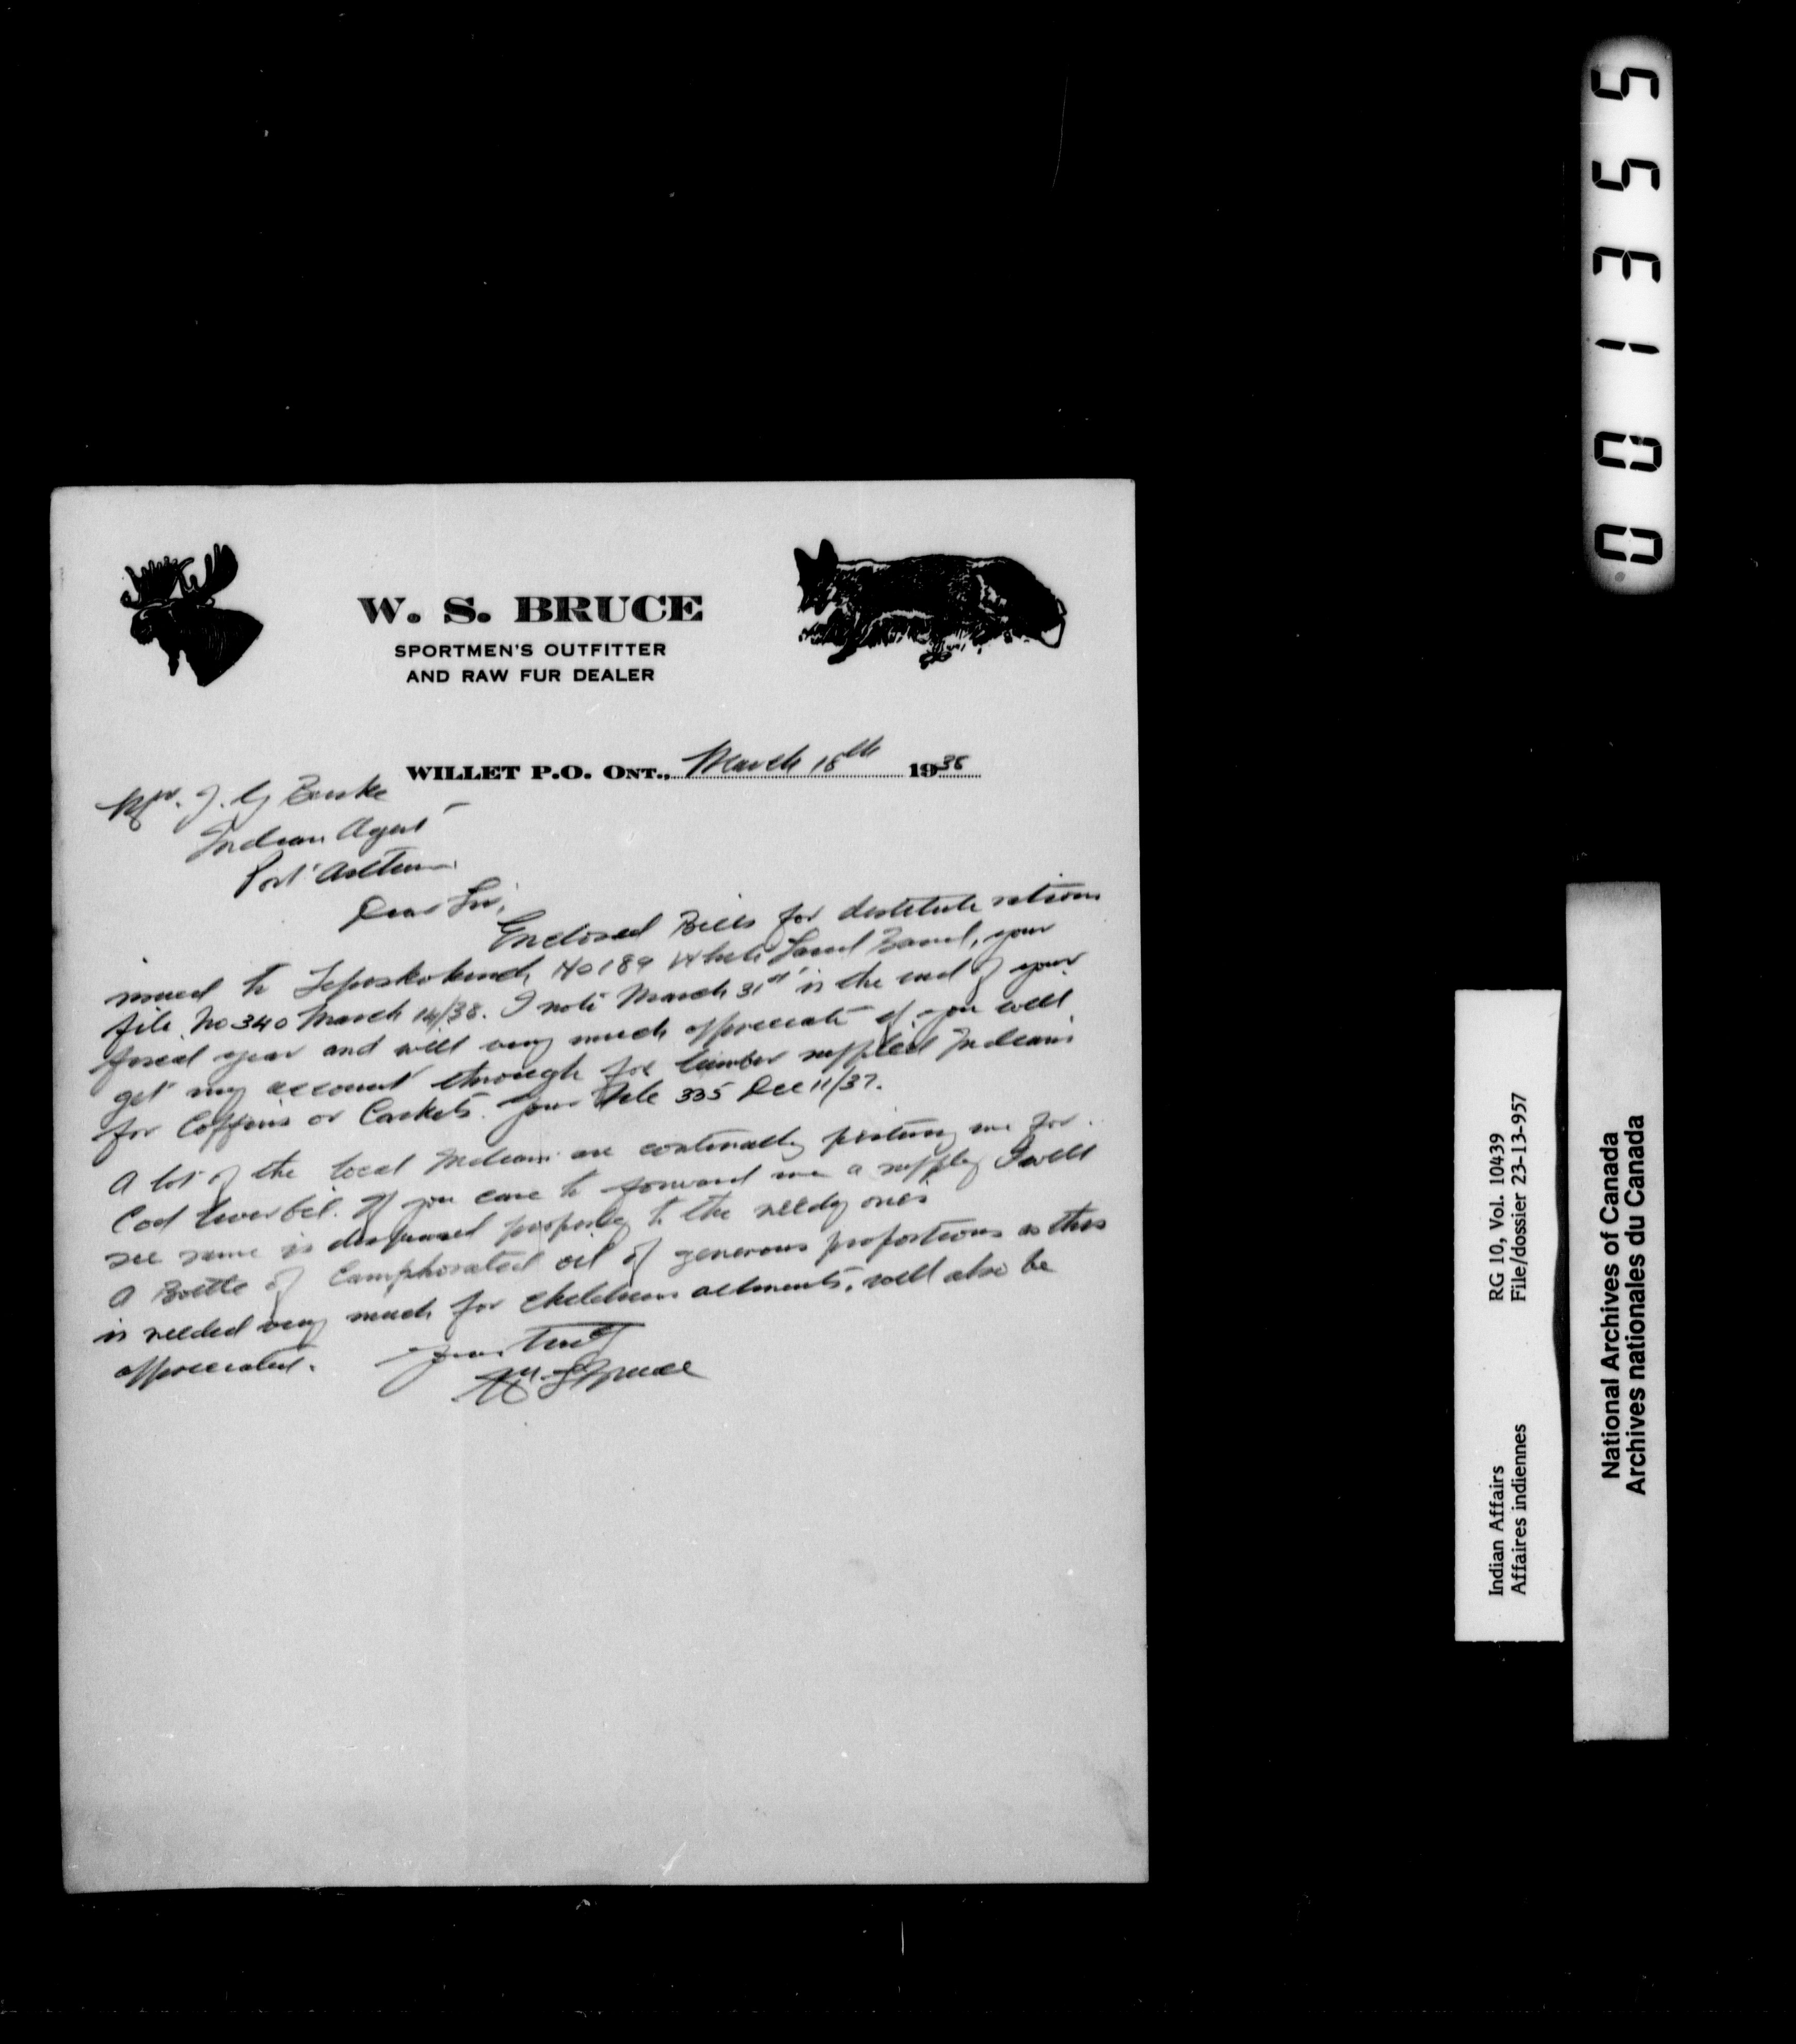 W. S. BRUCE
SPORTMEN'S OUTFITTER
AND RAW FUR DEALER
WILLET P.O. ONT., March 18th 1938
Mr. J. G Burke
Indian Agent
Port Arthur.
Dear Sir,
Enclosed Bills for destitute rations
issued to No 189 White Sand Band, your
file No 340 March 14/38. I note March 31st is the end of your
fiscal year and will very much appreciate if you will
get my account through for lumber supplied Indians
for Coffins or Caskets. Your File 335 Dec 11/37.
A lot of the local Indians are continually me for
Cod Liver Oil. If you care to forward me a supply I will
see same is dispensed properly to the needy ones
A Bottle of Camphorated oil of generous proportions as this
is needed very much for childrens ailments, will also be
appreciated. Yours Truly
W. S. Bruce
001355
RG 10, Vol. 10439
File/dossier 23-13-957
Indian Affairs
Affaires indiennes
National Archives of Canada
Archives nationales du Canada